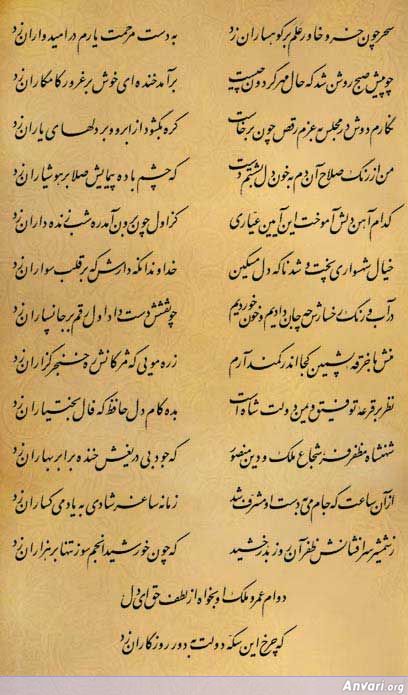 سحر چون خسرو خاور علم بر کوهساران زد به دست مرحمت یارم در امیدواران زد
چو پیش صبح روشن شد که حال مهر گردون چیست برآمد خنده ای خوش بر غرور کامکاران زد
نگارم دوش در مجلس به عزم رقص چون برخاست گره بگشود از ابرو و بر دلهای یاران زد
من از رنگ صلاح آن دم به خون دل بشستم دست که چشم باده پیمایش صلا بر هوشیاران زد
کدام آهن دلش آموخت این آیین عیاری کز اول چون برون آمد ره شب زنده داران زد
خیال شهسواری پخت و شد ناگه دل مسکین خداوندا نگه دارش که بر قلب سواران زد
در آب و رنگ رخسارش چه جان دادیم و خون خوردیم چو نقشش دست داد اول رقم بر جانسپاران زد
منش با خرقه پشمین کجا اندر کمند آرم زره مویی که مژگانش ره خنجرگزاران زد
نظر بر قرعه توفیق و یمن دولت شاه است بده کام دل حافظ که فال بختیاران زد
شهنشاه مظفر فر شجاع ملک و دین منصور که جود بی دریغش خنده بر ابر بهاران زد
از آن ساعت که جام می به دست او مشرف شد زمانه ساغر شادی به یاد میگساران زد
ز شمشیر سرافشانش ظفر آن روز بدرخشید که چون خورشید انجم سوز تنها بر هزاران زد
دوام عمر و ملک او بخواه از لطف حق ای دل
که چرخ این سکه دولت به دور روزگاران زد
Anvari.org